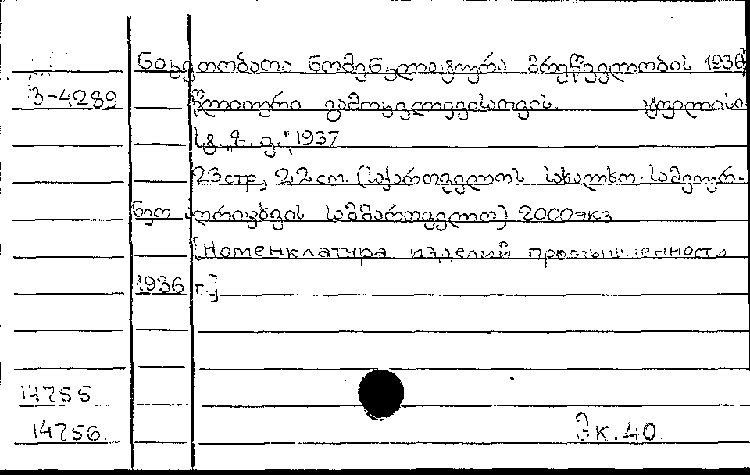 ნაკეთობათა ნომენკლატურა მრეწველობის 1936
3-4289 წლიური გამოკვლევისათვის. ტფილისი
სგ „ტ. ფ.“, 1937
23 стр, 22 cm. (საქართველოს სახალხო-სამეურ-
ნეო აღრიცხვის სამმართველო) 2000 экз
[Номенклатура изделий промышленности
1936 г.]
14255
14256. Эк. 40